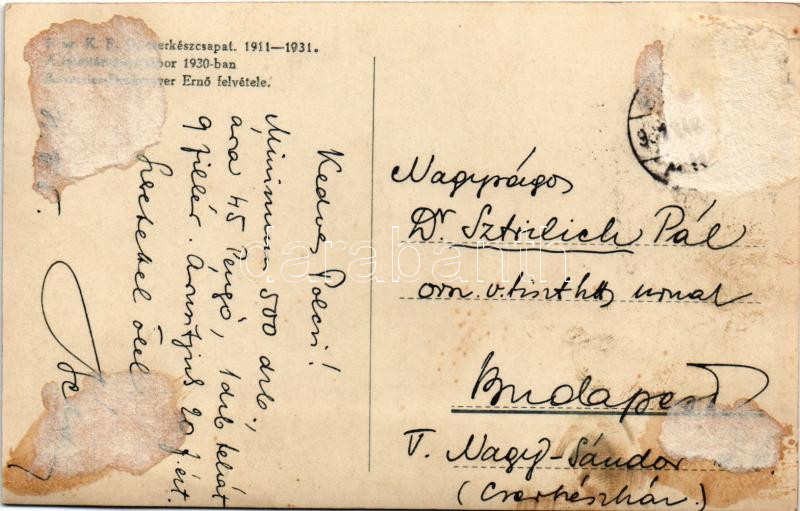 K. F. cserkészcsapat. 1911—1931.
tábor 1930-ban
Ernő felvétele.
Kedves Polcsi!
Minimum 500 drb.,
ára 45 Pengő, 1 drb tehát
9 fillér. Árusítjuk 20 f. ért.
Szeretettel ölel
Nagyságos
Dr. Sztrilich Pál
orsz. v. tiszt h. úrnak
Budapest
V. Nagy-Sándor
(Cserkészház.)
darabanth